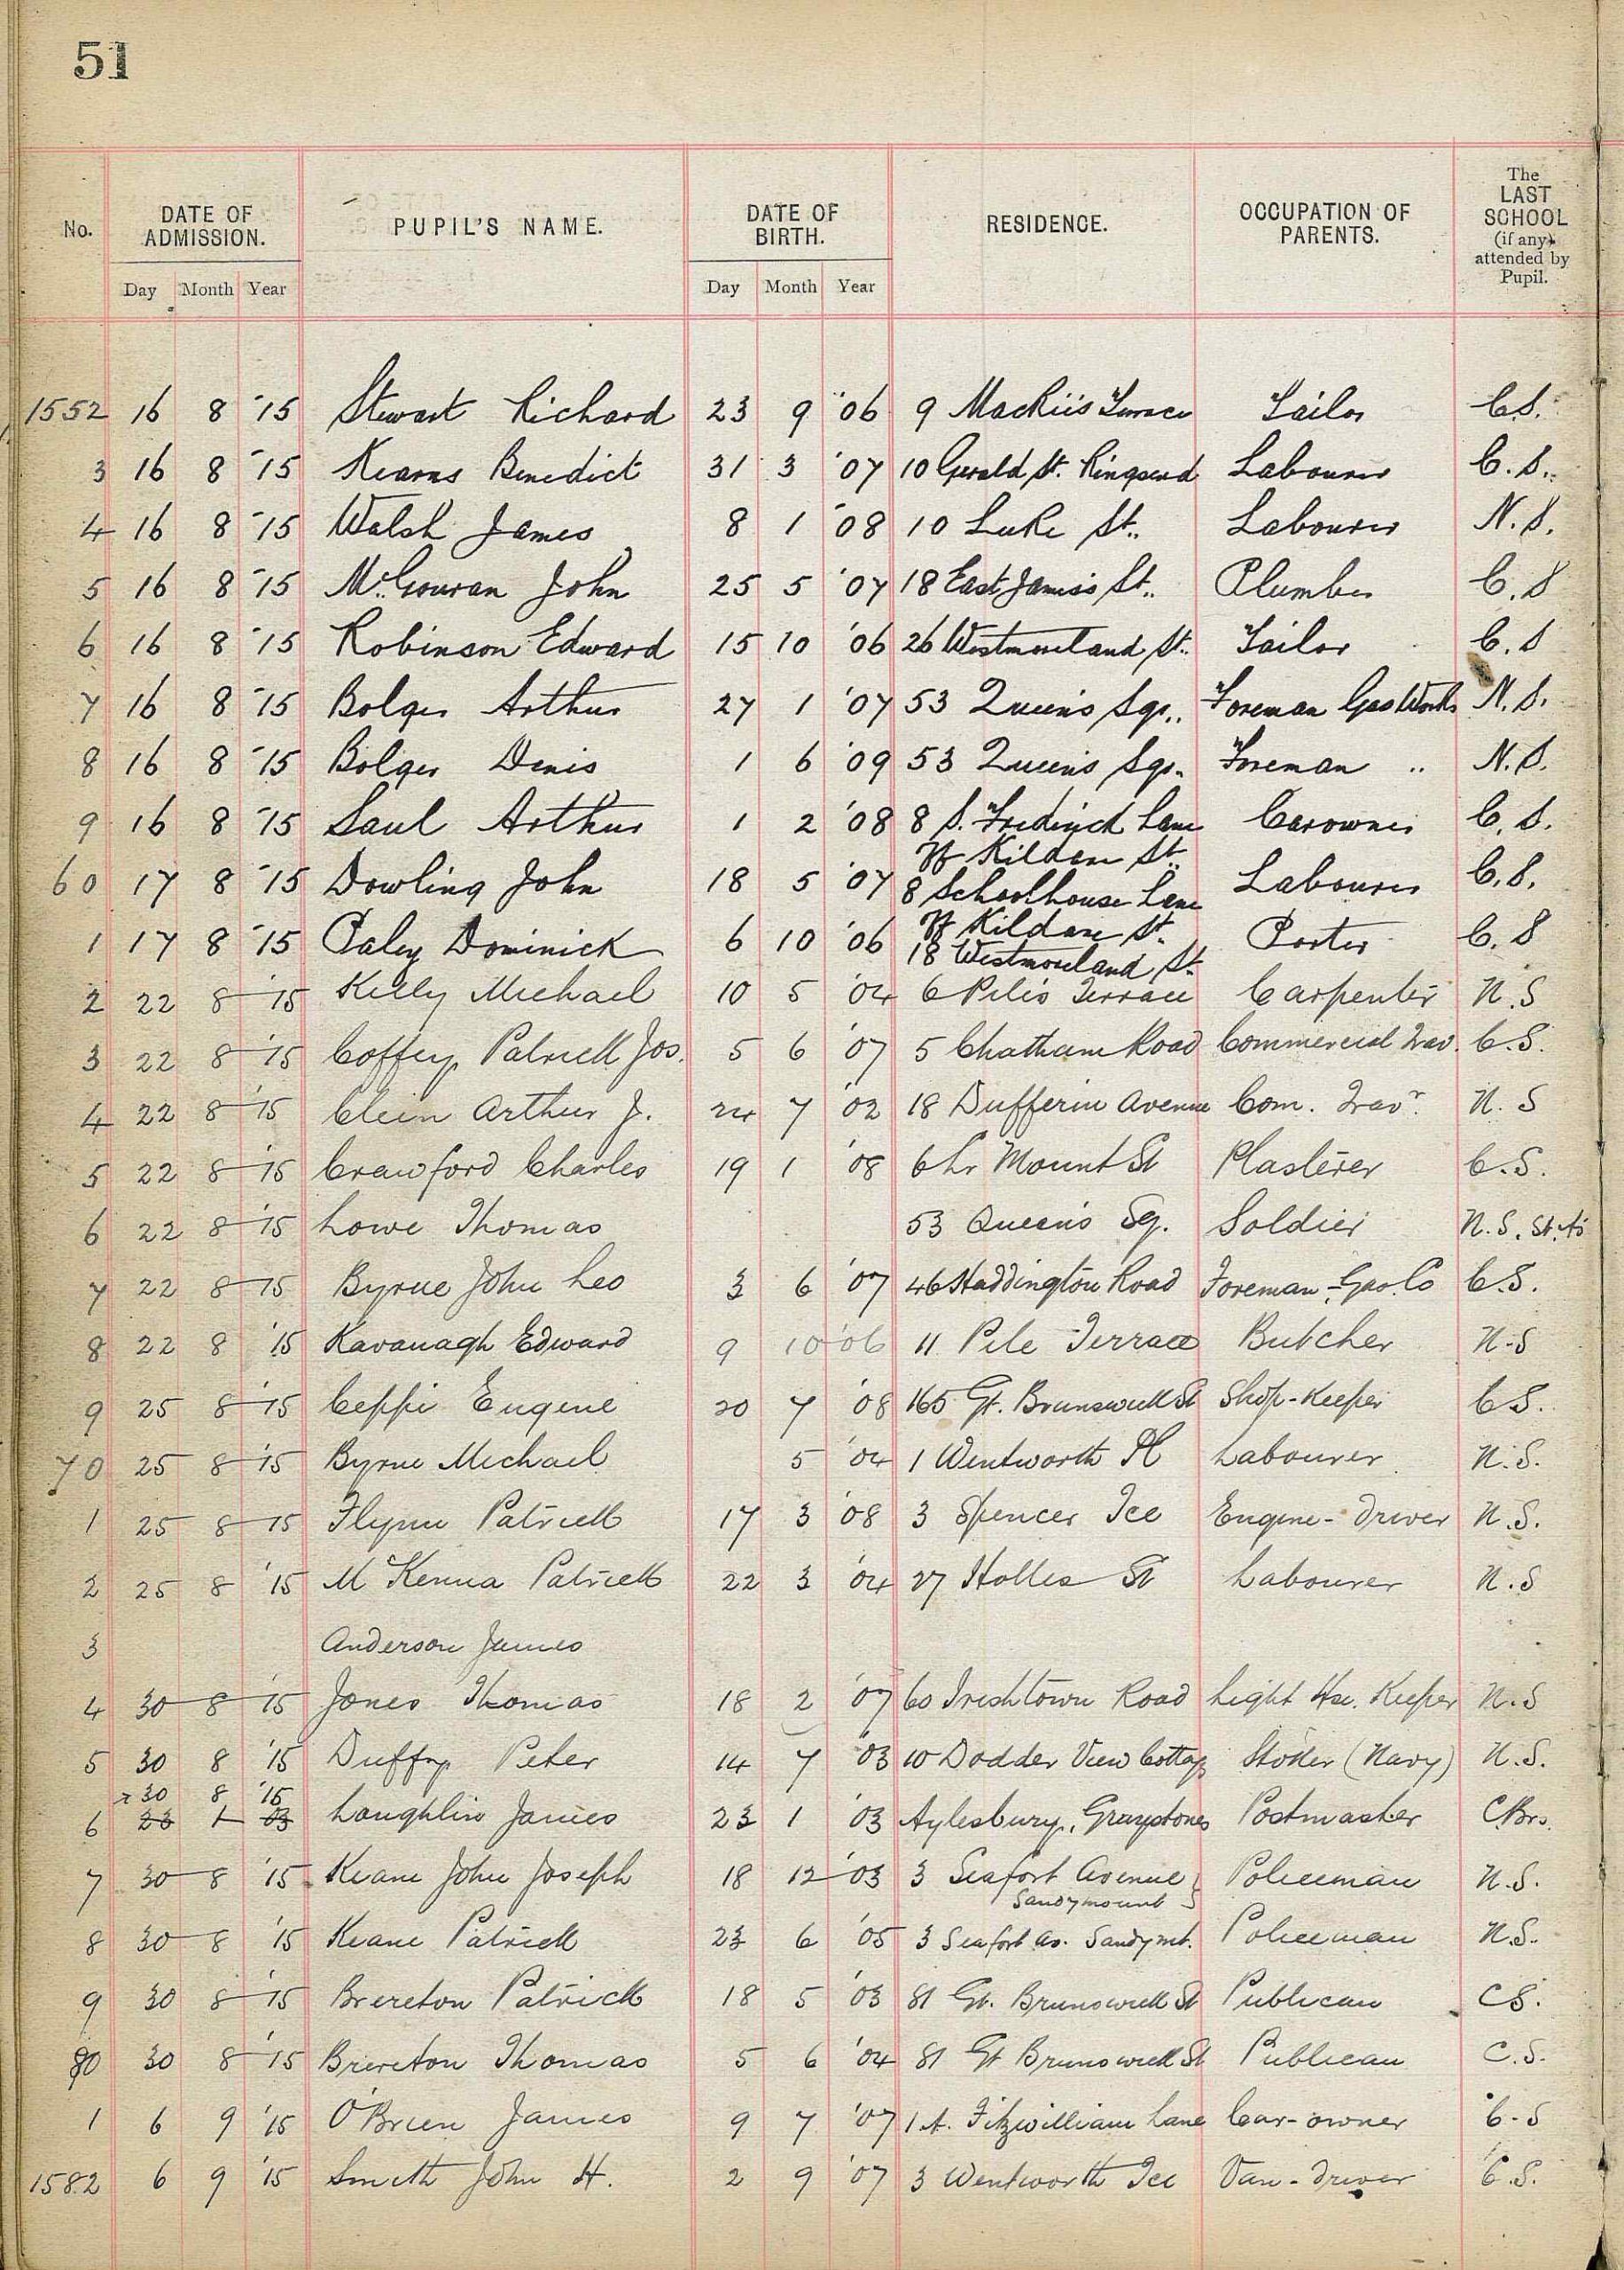 51
No. DATE OF ADMISSION. PUPIL'S NAME. DATE OF BIRTH. RESIDENCE. OCCUPATION OF PARENTS. The LAST SCHOOL (if any) attended by Pupil.
Day Month Year Day Month Year
1552 16 8 '15 Stewart Richard 23 9 '06 9 Mackie's Terrace Tailor C.S.
3 16 8 '15 Kearns Benedict 31 3 '07 10 Gerald St. Ringsend Labourer C.S.
4 16 8 '15 Walsh James 8 1 '08 10 Luke St. Labourer N.S.
5 16 8 '15 McGouran John 25 5 '07 18 East James's St. Plumber C.S
6 16 8 '15 Robinson Edward 15 10 '06 26 Westmoreland St. Tailor C.S
7 16 8 '15 Bolger Arthur 27 1 '07 53 Queen's Sqr. Foreman Gas Works N.S.
8 16 8 '15 Bolger Denis 1 6 '09 53 Queen's Sqr. Foreman " N.S.
9 16 8 '15 Saul Arthur 1 2 '08 8 S. Frederick Lane Carowner C.S.
off Kildare St.
60 17 8 '15 Dowling John 18 5 '07 8 Schoolhouse Lane Labourer C.S.
off Kildare St.
1 17 8 '15 Paley Dominick 6 10 '06 18 Westmoreland St. Porter C.S
2 22 8 '15 Kelly Michael 10 5 '04 6 Pile's Terrace Carpenter N.S
3 22 8 '15 Coffey Patrick Jos. 5 6 '07 5 Chatham Road Commercial Trav. C.S.
4 22 8 '15 Clein Arthur J. 24 7 '02 18 Dufferin Avenue Com. Travr. N.S
5 22 8 '15 Crawford Charles 19 1 '08 6 Lr Mount St Plasterer C.S.
6 22 8 '15 Lowe Thomas 53 Queen's Sq. Soldier N.S. St. A's
7 22 8 '15 Byrne John Leo 3 6 '07 46 Haddington Road Foreman - Gas Co C.S.
8 22 8 '15 Kavanagh Edward 9 10 '06 11 Pile Terrace Butcher N.S
9 25 8 '15 Ceppi Eugene 20 7 '08 165 Gt. Brunswick St Shop-Keeper C.S.
70 25 8 '15 Byrne Michael 5 '04 1 Wentworth Pl Labourer N.S.
1 25 8 '15 Flynn Patrick 17 3 '08 3 Spencer Tce Engine-driver N.S.
2 25 8 '15 McKenna Patrick 22 3 '04 27 Holles St Labourer N.S
3 Anderson James
4 30 8 '15 Jones Thomas 18 2 '07 60 Irishtown Road Light Hse. Keeper N.S
5 30 8 '15 Duffy Peter 14 7 '03 10 Dodder View Cottages Stoker (Navy) N.S.
30 8 '15
6 23 1 03 Loughlin James 23 1 '03 Aylesbury, Greystones Postmaster C.Brs.
7 30 8 '15 Keane John Joseph 18 12 '03 3 Seafort Avenue Policeman N.S.
Sandymount
8 30 8 '15 Keane Patrick 23 6 '05 3 Seafort Av. Sandymt. Policeman N.S.
9 30 8 '15 Brereton Patrick 18 5 '03 81 Gt. Brunswick St Publican C.S.
80 30 8 '15 Brereton Thomas 5 6 '04 81 Gt Brunswick St Publican C.S.
1 6 9 '15 O'Brien James 9 7 '07 1A. Fitzwilliam Lane Car-owner C.S
1582 6 9 '15 Smith John H. 2 9 '07 3 Wentworth Tce Van-driver C.S.